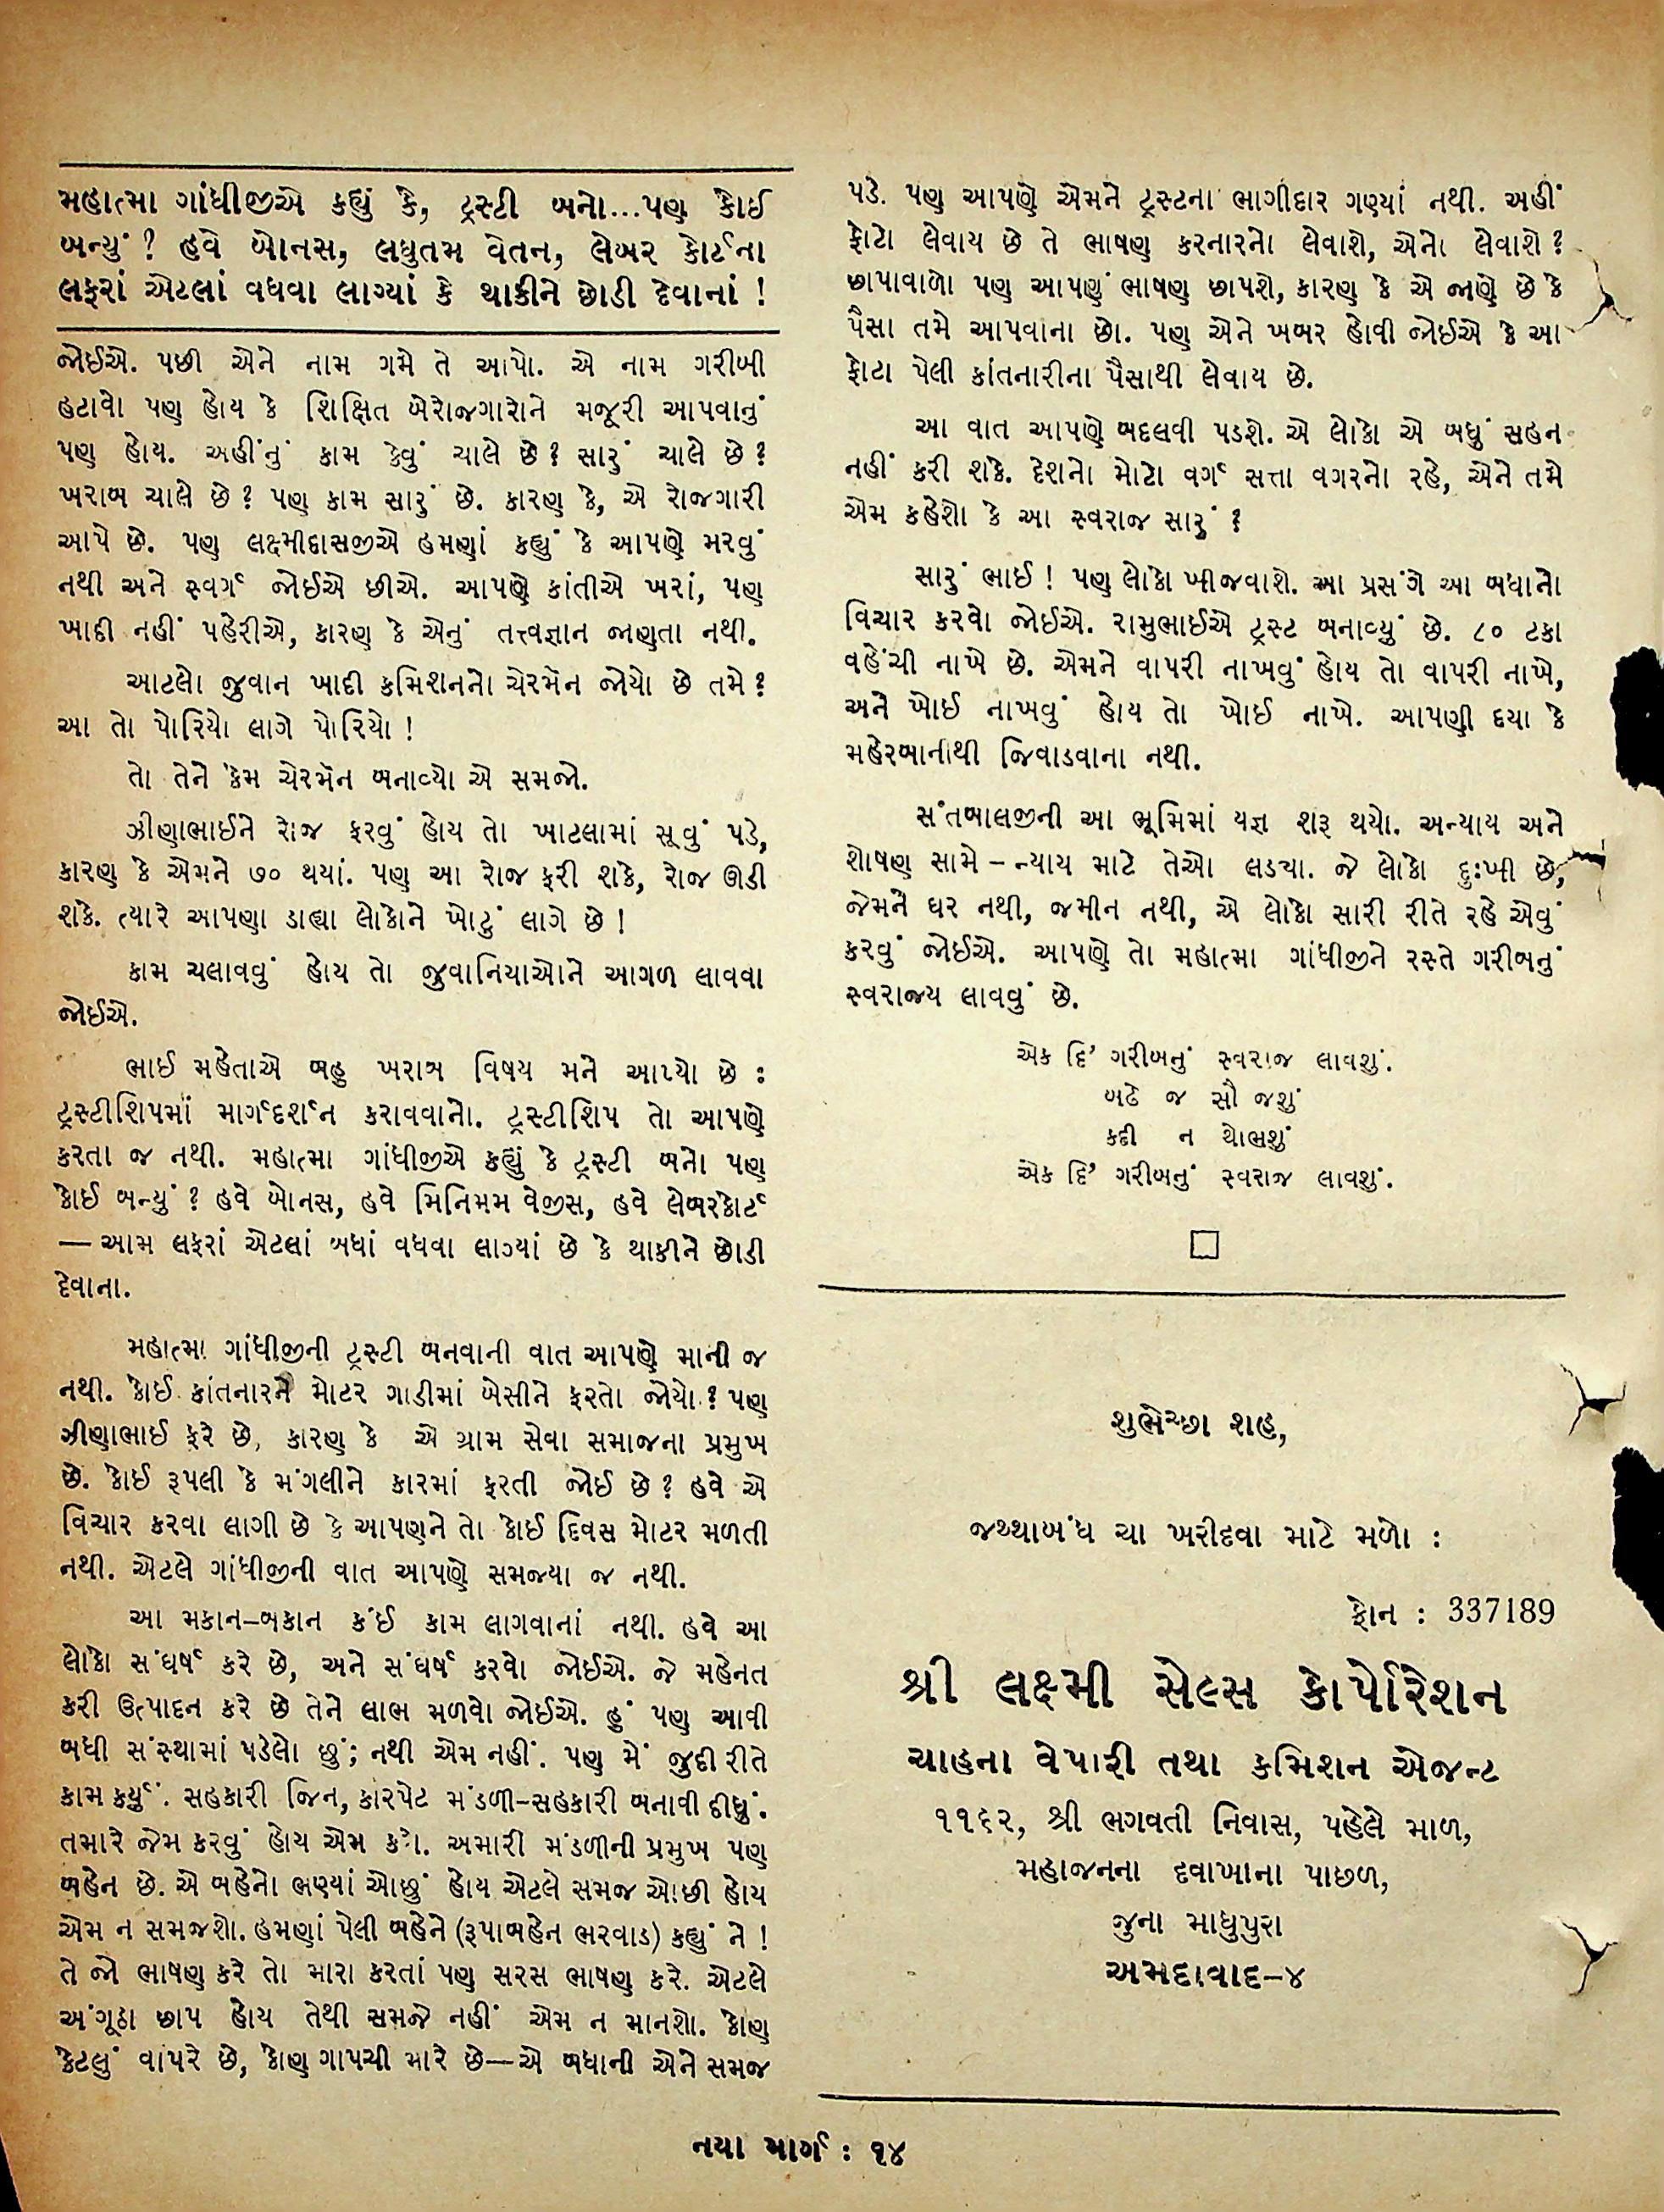 મહાત્મા ગાંધીજીએ કહ્યું કે, ટ્રસ્ટી બનો...પણ કોઈ
બન્યું ? હવે બોનસ, લઘુતમ વેતન, લેબર કોર્ટના
લફરાં એટલાં વધવા લાગ્યાં કે થાકીને છોડી દેવાનાં !
જોઈએ. પછી એને નામ ગમે તે આપો. એ નામ ગરીબી
હટાવો પણ હોય કે શિક્ષિત બેરોજગારોને મજૂરી આપવાનું
પણ હોય. અહીંનું કામ કેવું ચાલે છે ? સારું ચાલે છે ?
ખરાબ ચાલે છે ? પણ કામ સારું છે. કારણ કે, એ રોજગારી
આપે છે. પણ લક્ષ્મીદાસજીએ હમણાં કહ્યું કે આપણે મરવું
નથી અને સ્વર્ગ જોઈએ છીએ. આપણે કાંતીએ ખરાં, પણ
ખાદી નહીં પહેરીએ, કારણ કે એનું તત્ત્વજ્ઞાન જાણતા નથી.
આટલો જુવાન ખાદી કમિશનનો ચેરમૅન જોયો છે તમે ?
આ તો પોરિયો લાગે પોરિયો !
તો તેને કેમ ચેરમૅન બનાવ્યો એ સમજો.
ઝીણાભાઈને રોજ ફરવું હોય તો ખાટલામાં સૂવું પડે,
કારણ કે એમને ૭૦ થયાં. પણ આ રોજ ફરી શકે, રોજ ઊડી
શકે. ત્યારે આપણા ડાહ્યા લોકોને ખોટું લાગે છે !
કામ ચલાવવું હોય તો જુવાનિયાઓને આગળ લાવવા
જોઈએ.
ભાઈ મહેતાએ બહુ ખરાબ વિષય મને આપ્યો છે :
ટ્રસ્ટીશિપમાં માર્ગદર્શન કરાવવાનો. ટ્રસ્ટીશિપ તો આપણે
કરતા જ નથી. મહાત્મા ગાંધીજીએ કહ્યું કે ટ્રસ્ટી બનો પણ
કોઈ બન્યું ? હવે બોનસ, હવે મિનિમમ વેજીસ, હવે લેબરકોર્ટ
— આમ લફરાં એટલાં બધાં વધવા લાગ્યાં છે કે થાકીને છોડી
દેવાના.
મહાત્મા ગાંધીજીની ટ્રસ્ટી બનવાની વાત આપણે માની જ
નથી. કોઈ કાંતનારને મોટર ગાડીમાં બેસીને ફરતો જોયો ? પણ
ઝીણાભાઈ ફરે છે, કારણ કે એ ગ્રામ સેવા સમાજના પ્રમુખ
છે. કોઈ રૂપલી કે મંગલીને કારમાં ફરતી જોઈ છે ? હવે એ
વિચાર કરવા લાગી છે કે આપણને તો કોઈ દિવસ મોટર મળતી
નથી. એટલે ગાંધીજીની વાત આપણે સમજ્યા જ નથી.
આ મકાન–બકાન કંઈ કામ લાગવાનાં નથી. હવે આ
લોકો સંઘર્ષ કરે છે, અને સંઘર્ષ કરવો જોઈએ. જે મહેનત
કરી ઉત્પાદન કરે છે તેને લાભ મળવો જોઈએ. હું પણ આવી
બધી સંસ્થામાં પડેલો છું; નથી એમ નહીં. પણ મેં જુદી રીતે
કામ કર્યું. સહકારી જિન, કારપેટ મંડળી–સહકારી બનાવી દીધું.
તમારે જેમ કરવું હોય એમ કરો. અમારી મંડળીની પ્રમુખ પણ
બહેન છે. એ બહેનો ભણ્યાં ઓછું હોય એટલે સમજ ઓછી હોય
એમ ન સમજશો. હમણાં પેલી બહેને (રૂપાબહેન ભરવાડ) કહ્યું ને !
તે જો ભાષણ કરે તો મારા કરતાં પણ સરસ ભાષણ કરે. એટલે
અંગૂઠા છાપ હોય તેથી સમજે નહીં એમ ન માનશો. કોણ
કેટલું વાપરે છે, કોણ ગાપચી મારે છે—એ બધાની એને સમજ
પડે. પણ આપણે એમને ટ્રસ્ટના ભાગીદાર ગણ્યાં નથી. અહીં
ફોટો લેવાય છે તે ભાષણ કરનારનો લેવાશે, એનો લેવાશે ?
છાપાવાળો પણ આપણું ભાષણ છાપશે, કારણ કે એ જાણે છે કે
પૈસા તમે આપવાના છો. પણ એને ખબર હોવી જોઈએ કે આ
ફોટા પેલી કાંતનારીના પૈસાથી લેવાય છે.
આ વાત આપણે બદલવી પડશે. એ લોકો એ બધું સહન
નહીં કરી શકે. દેશનો મોટો વર્ગ સત્તા વગરનો રહે, એને તમે
એમ કહેશો કે આ સ્વરાજ સારું ?
સારું ભાઈ ! પણ લોકો ખીજવાશે. આ પ્રસંગે આ બધાનો
વિચાર કરવો જોઈએ. રામુભાઈએ ટ્રસ્ટ બનાવ્યું છે. ૮૦ ટકા
વહેંચી નાખે છે. એમને વાપરી નાખવું હોય તો વાપરી નાખે,
અને ખોઈ નાખવું હોય તો ખોઈ નાખે. આપણી દયા કે
મહેરબાનીથી જિવાડવાના નથી.
સંતબાલજીની આ ભૂમિમાં યજ્ઞ શરૂ થયો. અન્યાય અને
શોષણ સામે – ન્યાય માટે તેઓ લડ્યા. જે લોકો દુઃખી છે,
જેમને ઘર નથી, જમીન નથી, એ લોકો સારી રીતે રહે એવું
કરવું જોઈએ. આપણે તો મહાત્મા ગાંધીજીને રસ્તે ગરીબનું
સ્વરાજ્ય લાવવું છે.
એક દિ' ગરીબનું સ્વરાજ લાવશું.
બઢે જ સૌ જશું
કદી ન થોભશું
એક દિ' ગરીબનું સ્વરાજ લાવશું.
શુભેચ્છા શહ,
જથ્થાબંધ ચા ખરીદવા માટે મળો :
ફોન : 337189
શ્રી લક્ષ્મી સેલ્સ કોર્પોરેશન
ચાહના વેપારી તથા કમિશન એજન્ટ
૧૧૬૨, શ્રી ભગવતી નિવાસ, પહેલે માળ,
મહાજનના દવાખાના પાછળ,
જુના માધુપુરા
અમદાવાદ–૪
નયા માર્ગ : ૧૪